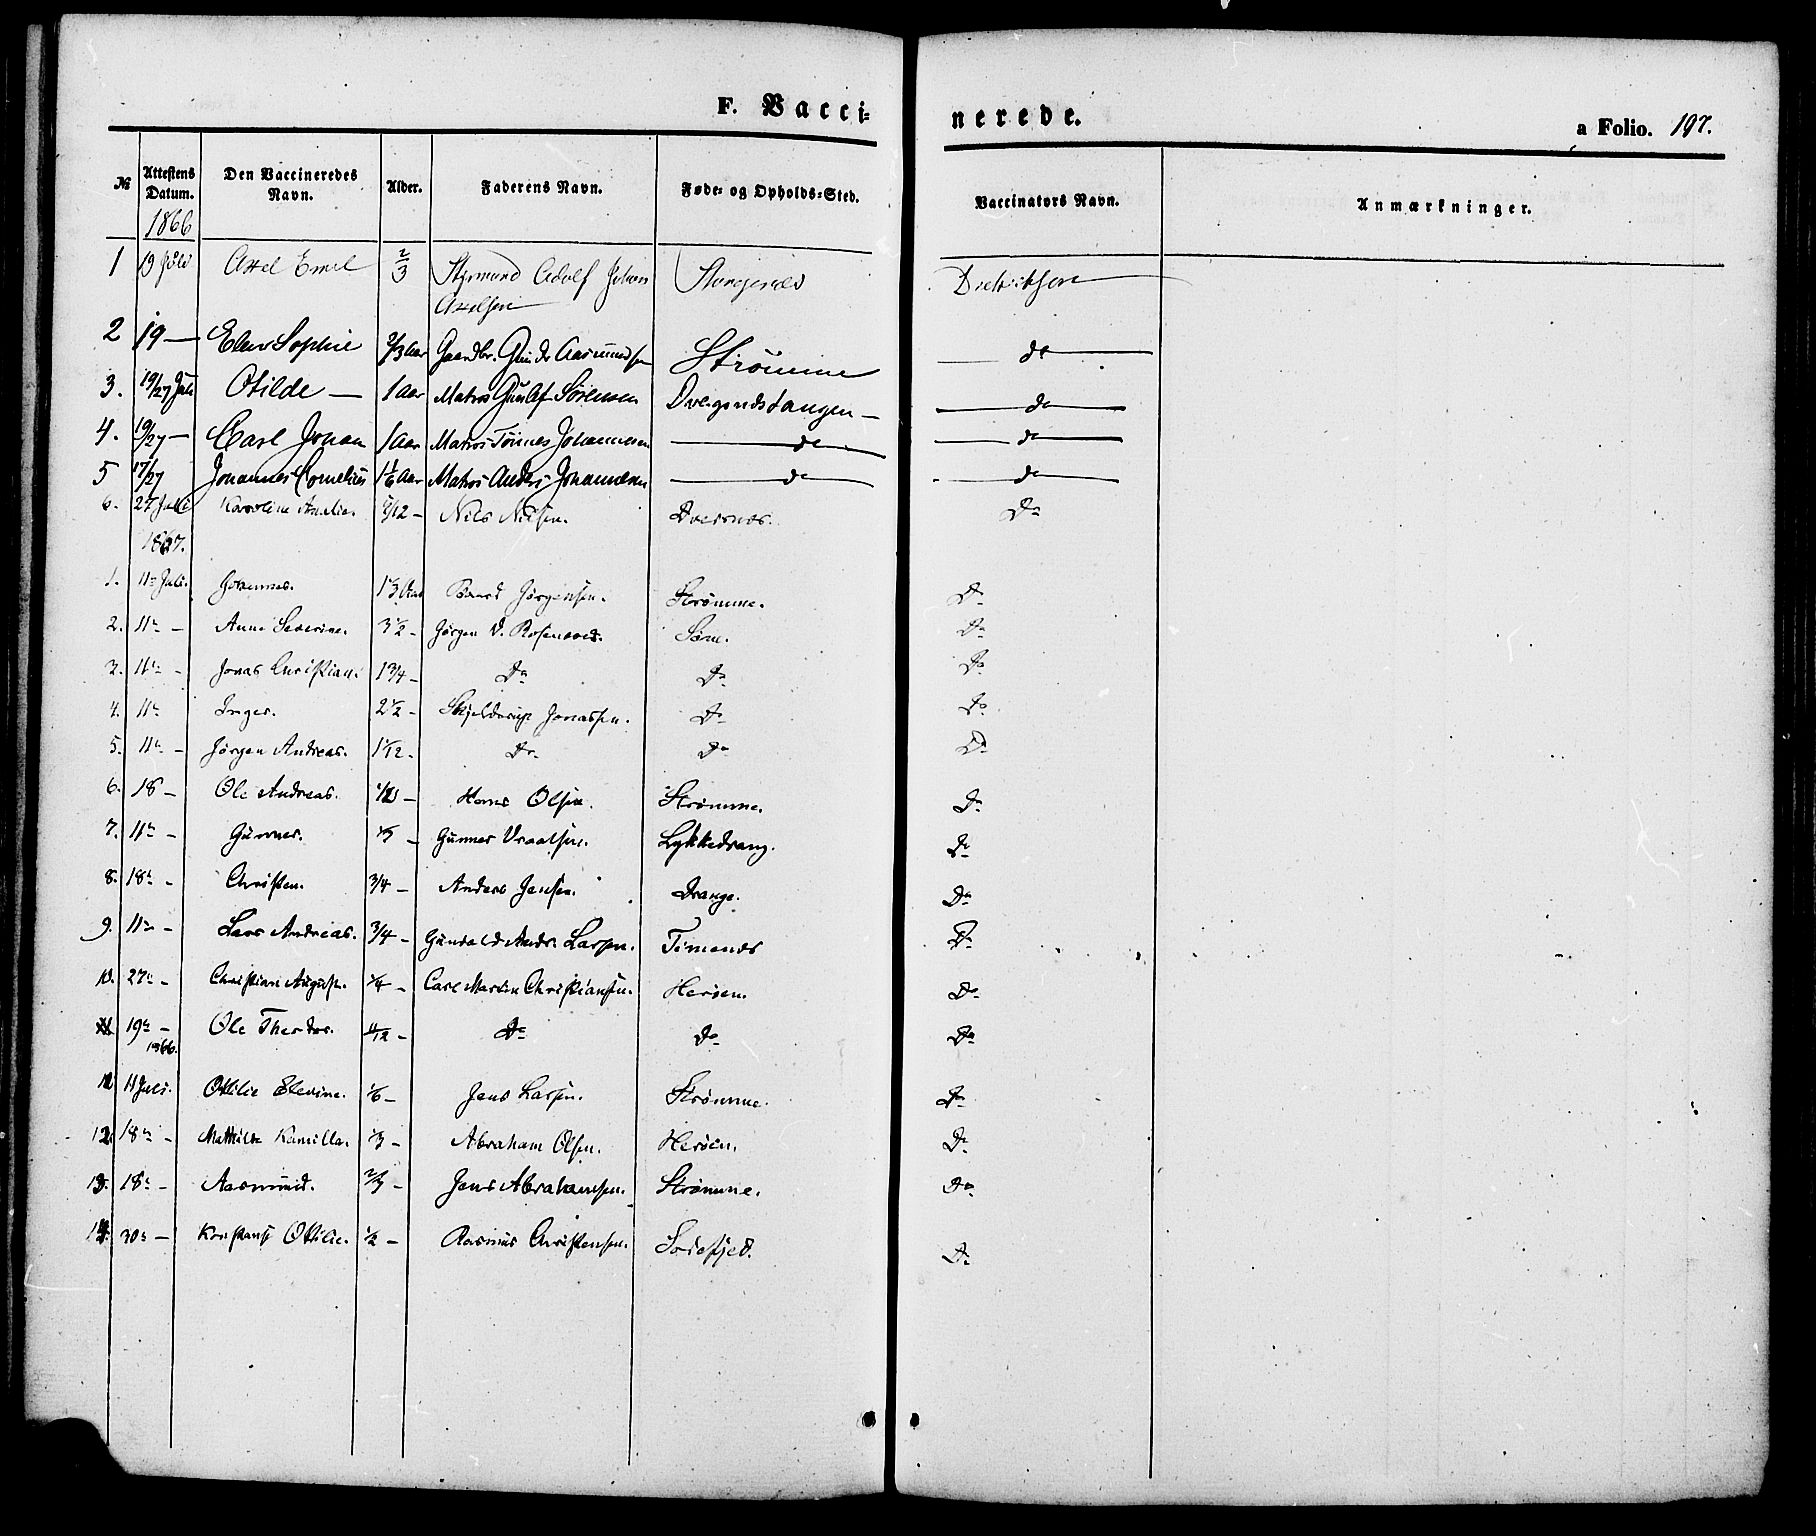 F. Vacci-
nerede.
a Folio. 197.
№ Attestens Datum. Den Vaccineredes Navn. Alder. Faderens Navn. Føde- og Opholds-Sted. Vaccinators Navn. Anmærkninger.
1866
1 19 Juli Axel Emil 2/3 Adolf Johan
Axelsen
2 19 — Elen Sophie 2/3 Aar Gaardbr. Aasmundsen Strømme — do —
3. 19/27 Juli Otilde — 1 Aar Matros Sørensen Dvergsnestangen — — do —
4. 19/27 — Carl Johan 1 Aar Matros Tønnes Johannesen — do — — do —
5 17/27 Johannes Cornelius 1 1/6 Aar Matros Anders Johannesen — do — — do —
6. 27 Juli Karoline Amalie. /12 — Nils Nilsen. Dversnes. Do
1867.
1. 11te Juli. Johannes. 1 2/3 Aar Jørgensen. Strømme. Do
2. 11te — Anne Severine. 3 1/2 — Jørgen Søm. Do
3. 11te — Jonas Christian. 1 3/4 — Do Do Do
4. 11te Inger. 2 1/2 — Skjelderup Jonassen. Do Do
5. 11te — Jørgen Andreas. 1 1/12 — Do Do Do
6. 18 — Ole Andreas. Hans Olsen. Strømme. Do
7. 11te — Gunner. Gunner Lykkedrang. Do
8. 18te — Christen. 3/4 — Anders Jensen. Drange. Do
9. 11te — Lars Andreas. 3/4 — Andr. Larsen. Timenes Do
10. 27te — Christian August. 1/4 — Carl Martin Christiansen. Herøen. Do
11 19te — Ole Theodor. 11/12 — Do Do Do
1866.
11 Juli. Ottilie Elevine. 1/6 — Jens Larsen. Strømme. Do
12 18te — Mathilde Kamilla. 1/3 — Abraham Olsen. Herøen. Do
13. 18te — Aasmund. 2/3 — Jens Abrahamsen. Strømme. Do
14. 30te — Konstanse Ottilie. 1/2 — Rasmus Christensen. Sodefjed. Do